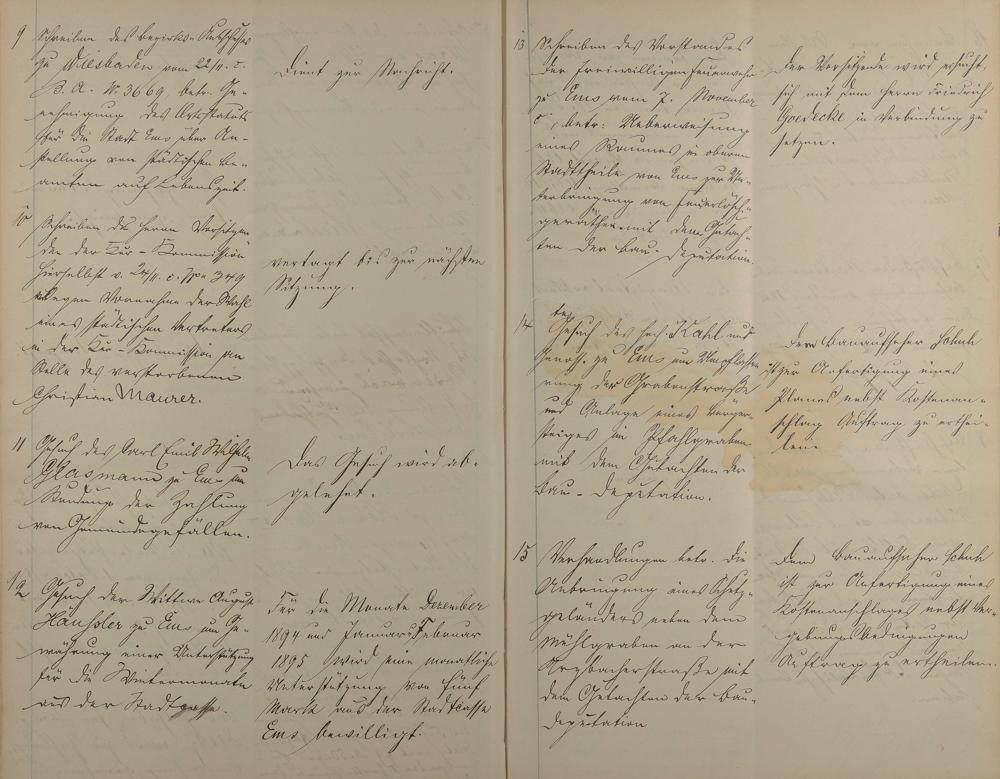 9 Schreiben des Bezirks-Ausschusses
zu Wiesbaden vom 22/11. c.
B. A. No. 3669, betr. Ge-
nehmigung des Ortsstatuts
für die Stadt Ems über An-
stellung von städtischen Be-
amten auf Lebenszeit.
Dient zur Nachricht.
10 Schreiben des Herrn Vorsitzen
den der Kur-Kommission
hierselbst v. 24/11. c. No 349
wegen Vornahme der Wahl
eines städtischen Vertreters
in der Kur-Kommission an
Stelle des verstorbenen
Christian Maurer.
vertagt bis zur nächsten
Sitzung.
11 Gesuch des Carl Emil Wilhelm
Glasmann zu Ems um
Stundung der Zahlung
von Gemeindegefällen.
Das Gesuch wird ab-
gelehnt.
12 Gesuch der Wittwe August
Häussler zu Ems um Ge-
währung einer Unterstützung
für die Wintermonate
aus der Stadtcasse.
Für die Monate Dezember
1894 und Januar, Februar
1895 wird eine monatliche
Unterstützung von fünf
Mark aus der Stadtcasse
Ems bewilligt.
13 Schreiben des Vorstandes
der freiwilligen Feuerwehr
zu Ems vom 7. November
c., betr: Ueberweisung
eines Raumes im oberen
Stadttheile von Ems zur Un-
terbringung von Feuerlösch-
geräthen mit dem Gutach-
ten der Bau-Deputation.
Der Vorsitzende wird ersucht,
sich mit dem Herrn Friedrich
Goedecke in Verbindung zu
setzen.
14 Gesuch des Hch. Kahl und
Genoss. zu Ems um Umpflaste-
rung der Grabenstrasse
und Anlage eines Bürger-
steiges im Pfahlgraben
mit dem Gutachten der
Bau-Deputation.
Dem Bauaufseher
ist zur Anfertigung eines
Planes nebst Kostenan-
schlag Auftrag zu erthei-
len.
15 Verhandlungen betr. die
Anbringung eines Schutz-
geländers neben dem
Mühlgraben an der
Arzbacherstraße mit
dem Gutachten der Bau-
Deputation
Dem Bauaufseher
ist zur Anfertigung eines
Kostenanschlages nebst Ver-
gebungsbedingungen
Auftrag zu ertheilen.